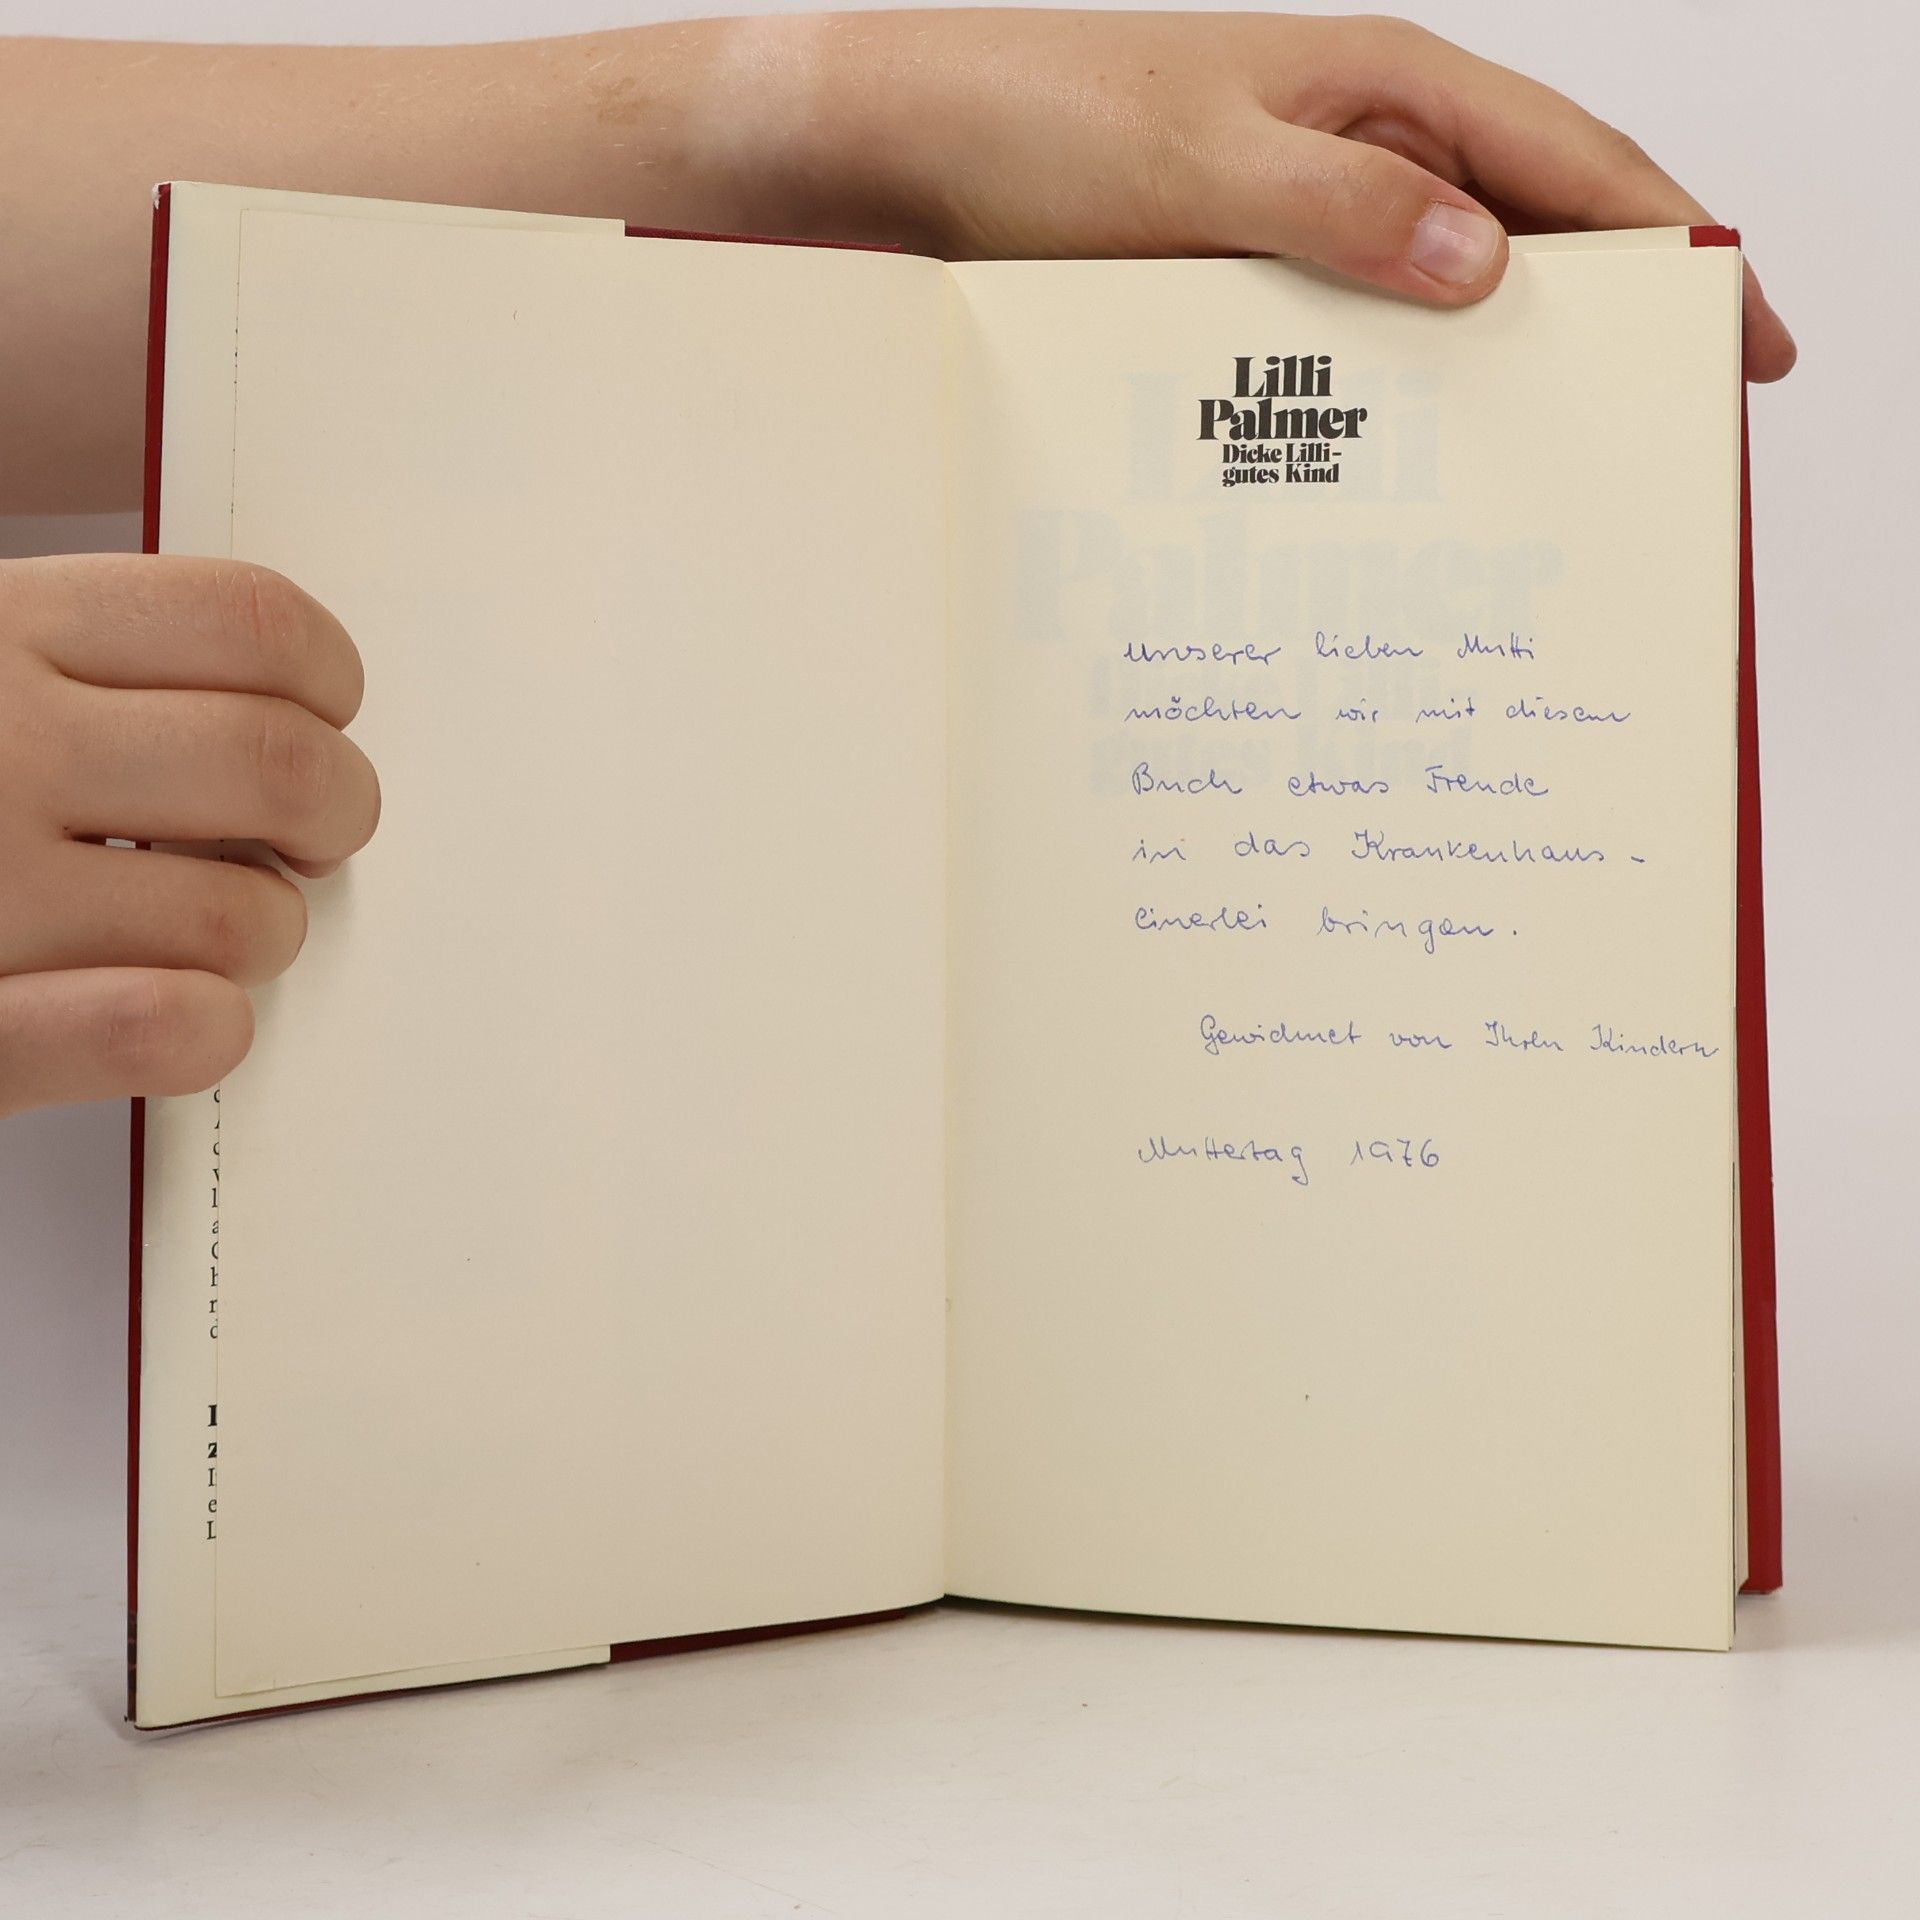 Lilli
Palmer
Dicke Lilli-
gutes Kind
Unserer lieben Mutti
möchten wir mit diesem
Buch etwas Freude
in das Krankenhaus-
einerlei bringen.
Gewidmet von Ihren Kindern
Muttertag 1976